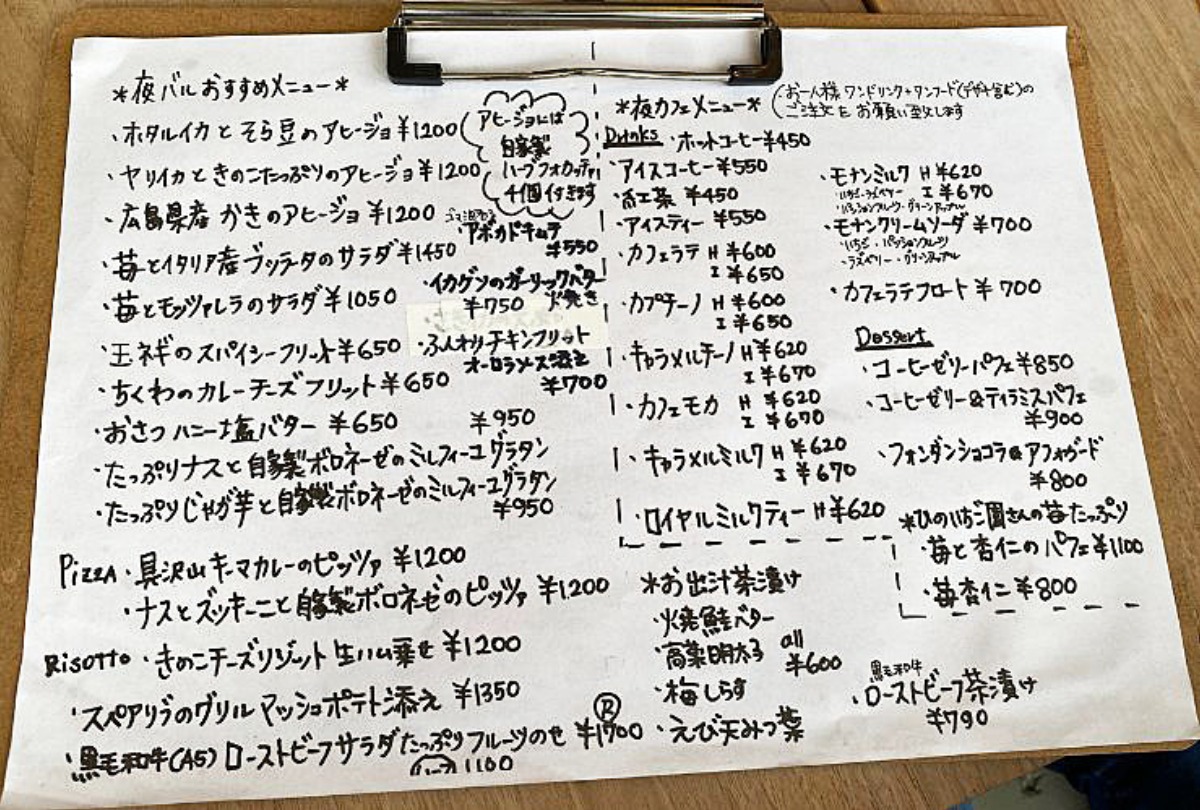 *夜バルおすすめメニュー*
・ホタルイカとそら豆のアヒージョ¥1200
・ヤリイカときのこたっぷりのアヒージョ¥1200
・広島県産 かきのアヒージョ¥1200
アヒージョには
自家製
ハーブフォカッチャ
4個付きます
・苺とイタリア産ブッラータのサラダ¥1450
・苺とモッツァレラのサラダ¥1050
・玉ネギのスパイシーフリット¥650
・ちくわのカレーチーズフリット¥650
・おさつハニー塩バター ¥650
・アボカドキムチ
¥550
・イカゲソのガーリックバター
¥750 火焼き
・ふんわりチキンフリット
オーロラソース添え
¥700
¥950
・たっぷりナスと自家製ボロネーゼのミルフィーユグラタン
・たっぷりじゃが芋と自家製ボロネーゼのミルフィーユグラタン
¥950
Pizza・具沢山キーマカレーのピッツァ ¥1200
・ナスとズッキーニと自家製ボロネーゼのピッツァ ¥1200
Risotto・きのこチーズリゾット生ハム乗せ ¥1200
・スペアリブのグリル マッシュポテト添え ¥1350
・黒毛和牛(A5)ローストビーフサラダたっぷりフルーツのせ ¥1700
Ⓡ
ハーフ 1100
*夜カフェメニュー*
(お一人様 ワンドリンク+ワンフード(デザート含む)の
ご注文をお願い致します
Drinks ・ホットコーヒー¥450
・アイスコーヒー¥550
・紅茶 ¥450
・アイスティー ¥550
・カフェラテ H ¥600
I ¥650
・カプチーノ H ¥600
I ¥650
・キャラメルチーノ H ¥620
I ¥670
・カフェモカ H ¥620
I ¥670
・キャラメルミルク H ¥620
I ¥670
・ロイヤルミルクティー H ¥620
・モナンミルク H ¥620
いちご・ラズベリー I ¥670
・パッションフルーツ・グリーンアップル
・モナンクリームソーダ ¥700
・いちご・パッションフルーツ
・ラズベリー・グリーンアップル
・カフェラテフロート ¥700
Dessert
・コーヒーゼリーパフェ¥850
・コーヒーゼリー&ティラミスパフェ
¥900
・フォンダンショコラ&アフォガード
¥800
*ひのいちご園さんの苺たっぷり
・苺と杏仁のパフェ¥1100
・苺杏仁¥800
*お出汁茶漬け
・火焼鮭バター
・高菜明太子
・梅しらす
・えび天みつ葉
all
¥600
黒毛和牛
・ローストビーフ茶漬け
¥790